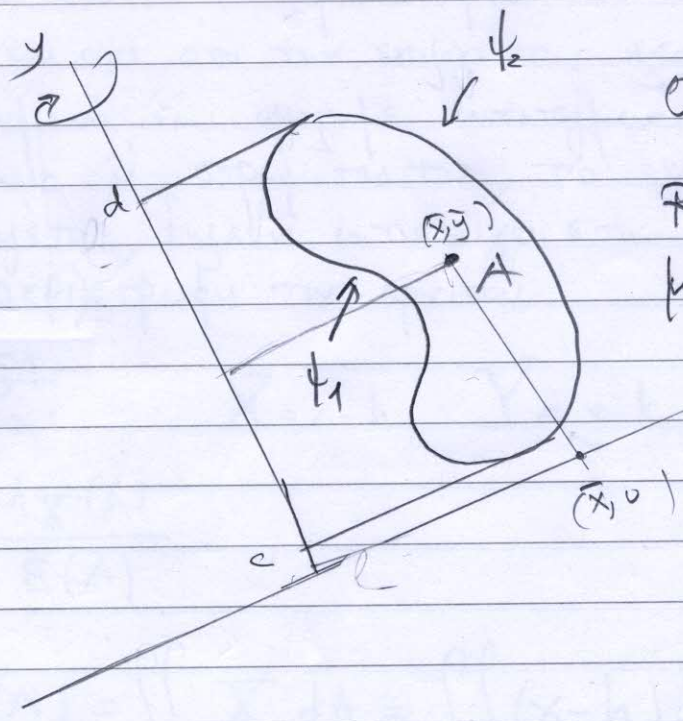 y
ψ₂
d
(x̄,ȳ)
A
ψ₁
(x̄,0)
c